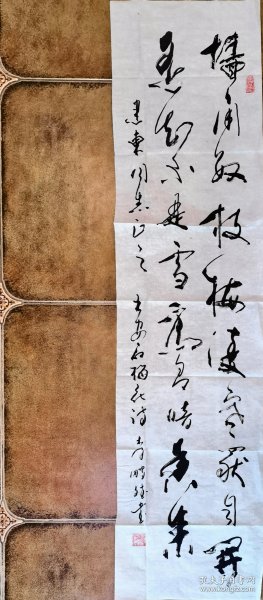 墙角数枝梅凌寒独自开
遥知不是雪为有暗香来
建东同志正之
王安石梅花诗